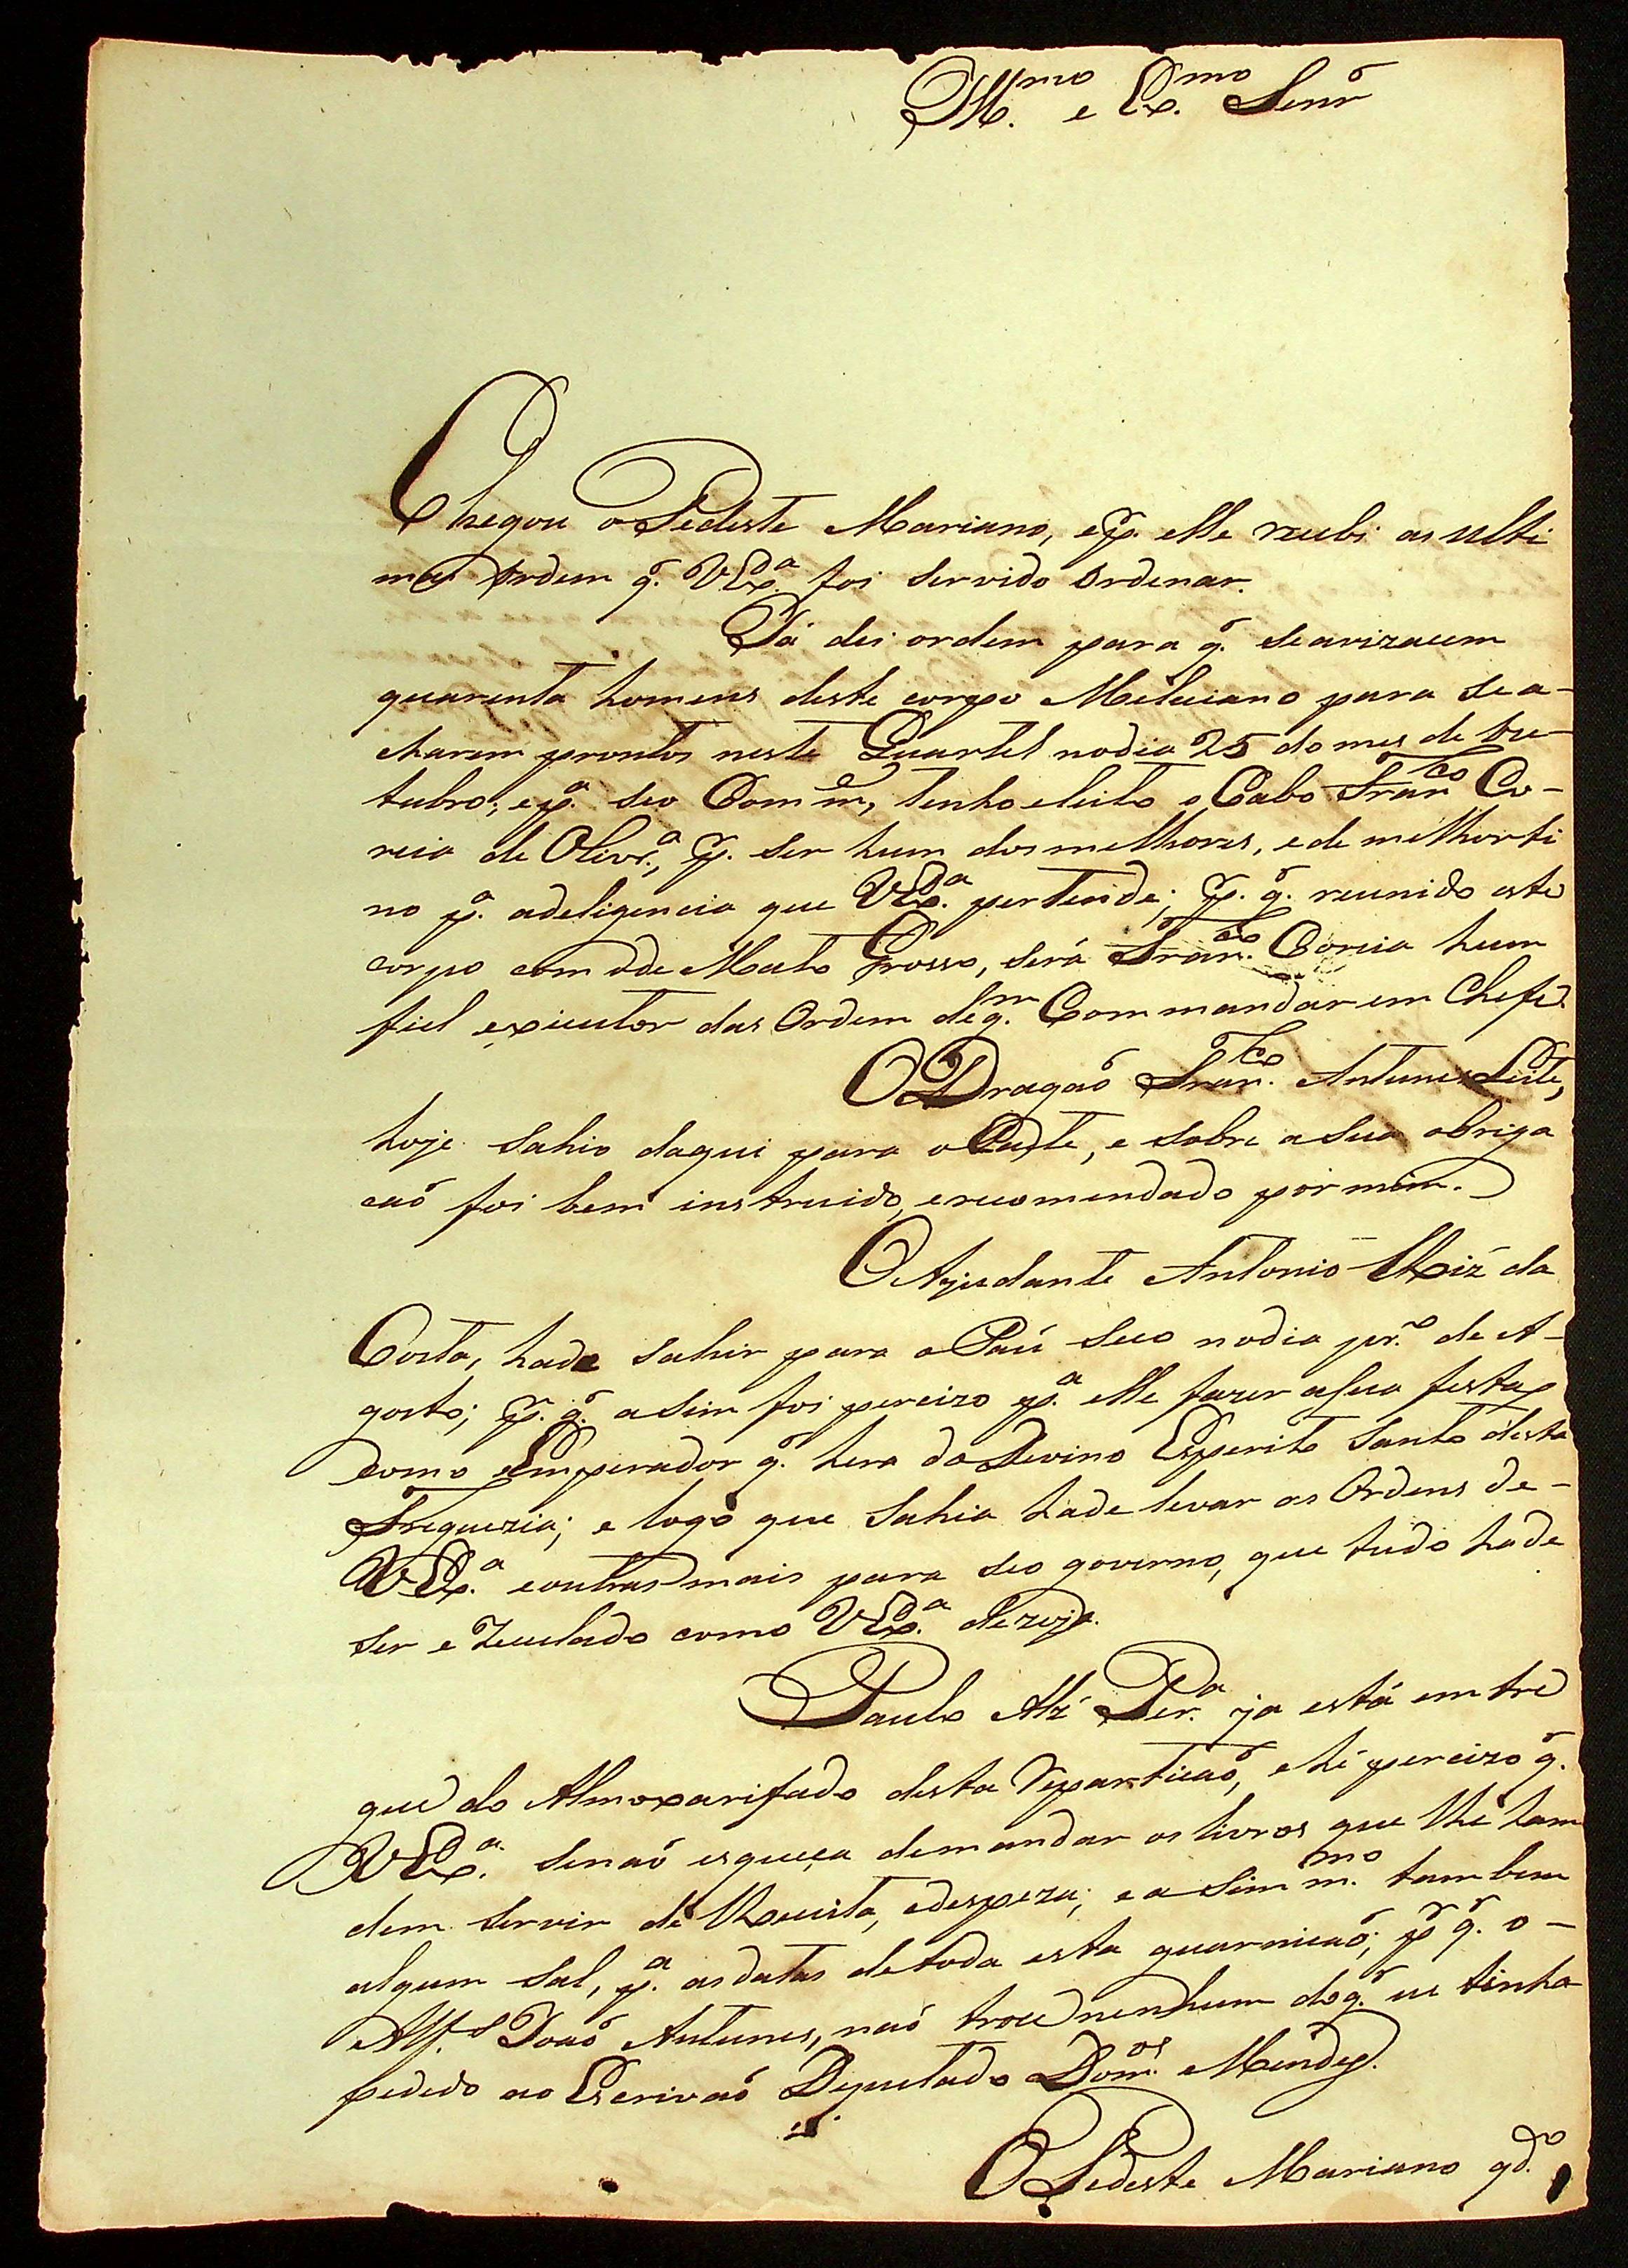 Ill.mo e Ex.mo Senr
Chegou o Pedeste Mariano, e p. elle recebi as ulti
mas Ordem q. V Ex.a foi Servido Ordenar.
Já dei ordem para q. se avizacem
quarenta homens deste corpo Meliciano para se a-
charem prontos neste Quartel no dia 25 do mes de Ou-
tubro; e p.a seo Comm.e, tenho eleito o Cabo Fran.co Co-
reia de Olivr.a, p. ser hum dos melhores, e de melhor ti
no p.a a deligencia que V Ex.a pertende; p. q. reunido este
corpo com o de Mato Grosso, será Fran.co Coreia hum
fiel exicutor das Ordem de q.m Commandar em Chefe.
O Dragaõ Fran.co Antunes Leite,
hoje Sahio daqui para o Oeste, e sobre a sua obriga
caõ foi bem instruido, e recomendado por mim.
O Ajudante Antonio Miz da
Costa, hade Sahir para o Paú Seco no dia pr.o de A-
gosto; p. q. a sim foi pereizo p.a elle fazer a sua festa
como Emperador q. hera do Devino Esperito Santo desta
Freguezia; e logo que Sahia hade levar as Ordens de-
V Ex.a e outras mais para seo governo, que tudo hade
ser e Zecutado como V Ex.a dezeja.
Paulo Alz Per.a ja está entre
gue do Almoxarifado desta Reparticaõ, e hé pereizo q.
V Ex.a se naõ esqueça de mandar os livros que lhe ham
dem Servir de Receita, e despeza; e a sim m.mo tambem
algum Sal, p.a as datas de toda esta guarnicaõ; p q. o-
Alf.s Joaõ Antunes, naõ troce nenhum do q. se tinha
pededo ao Escrivaõ Deputado Dom.os Mendes.
O Pedeste Mariano qd.o